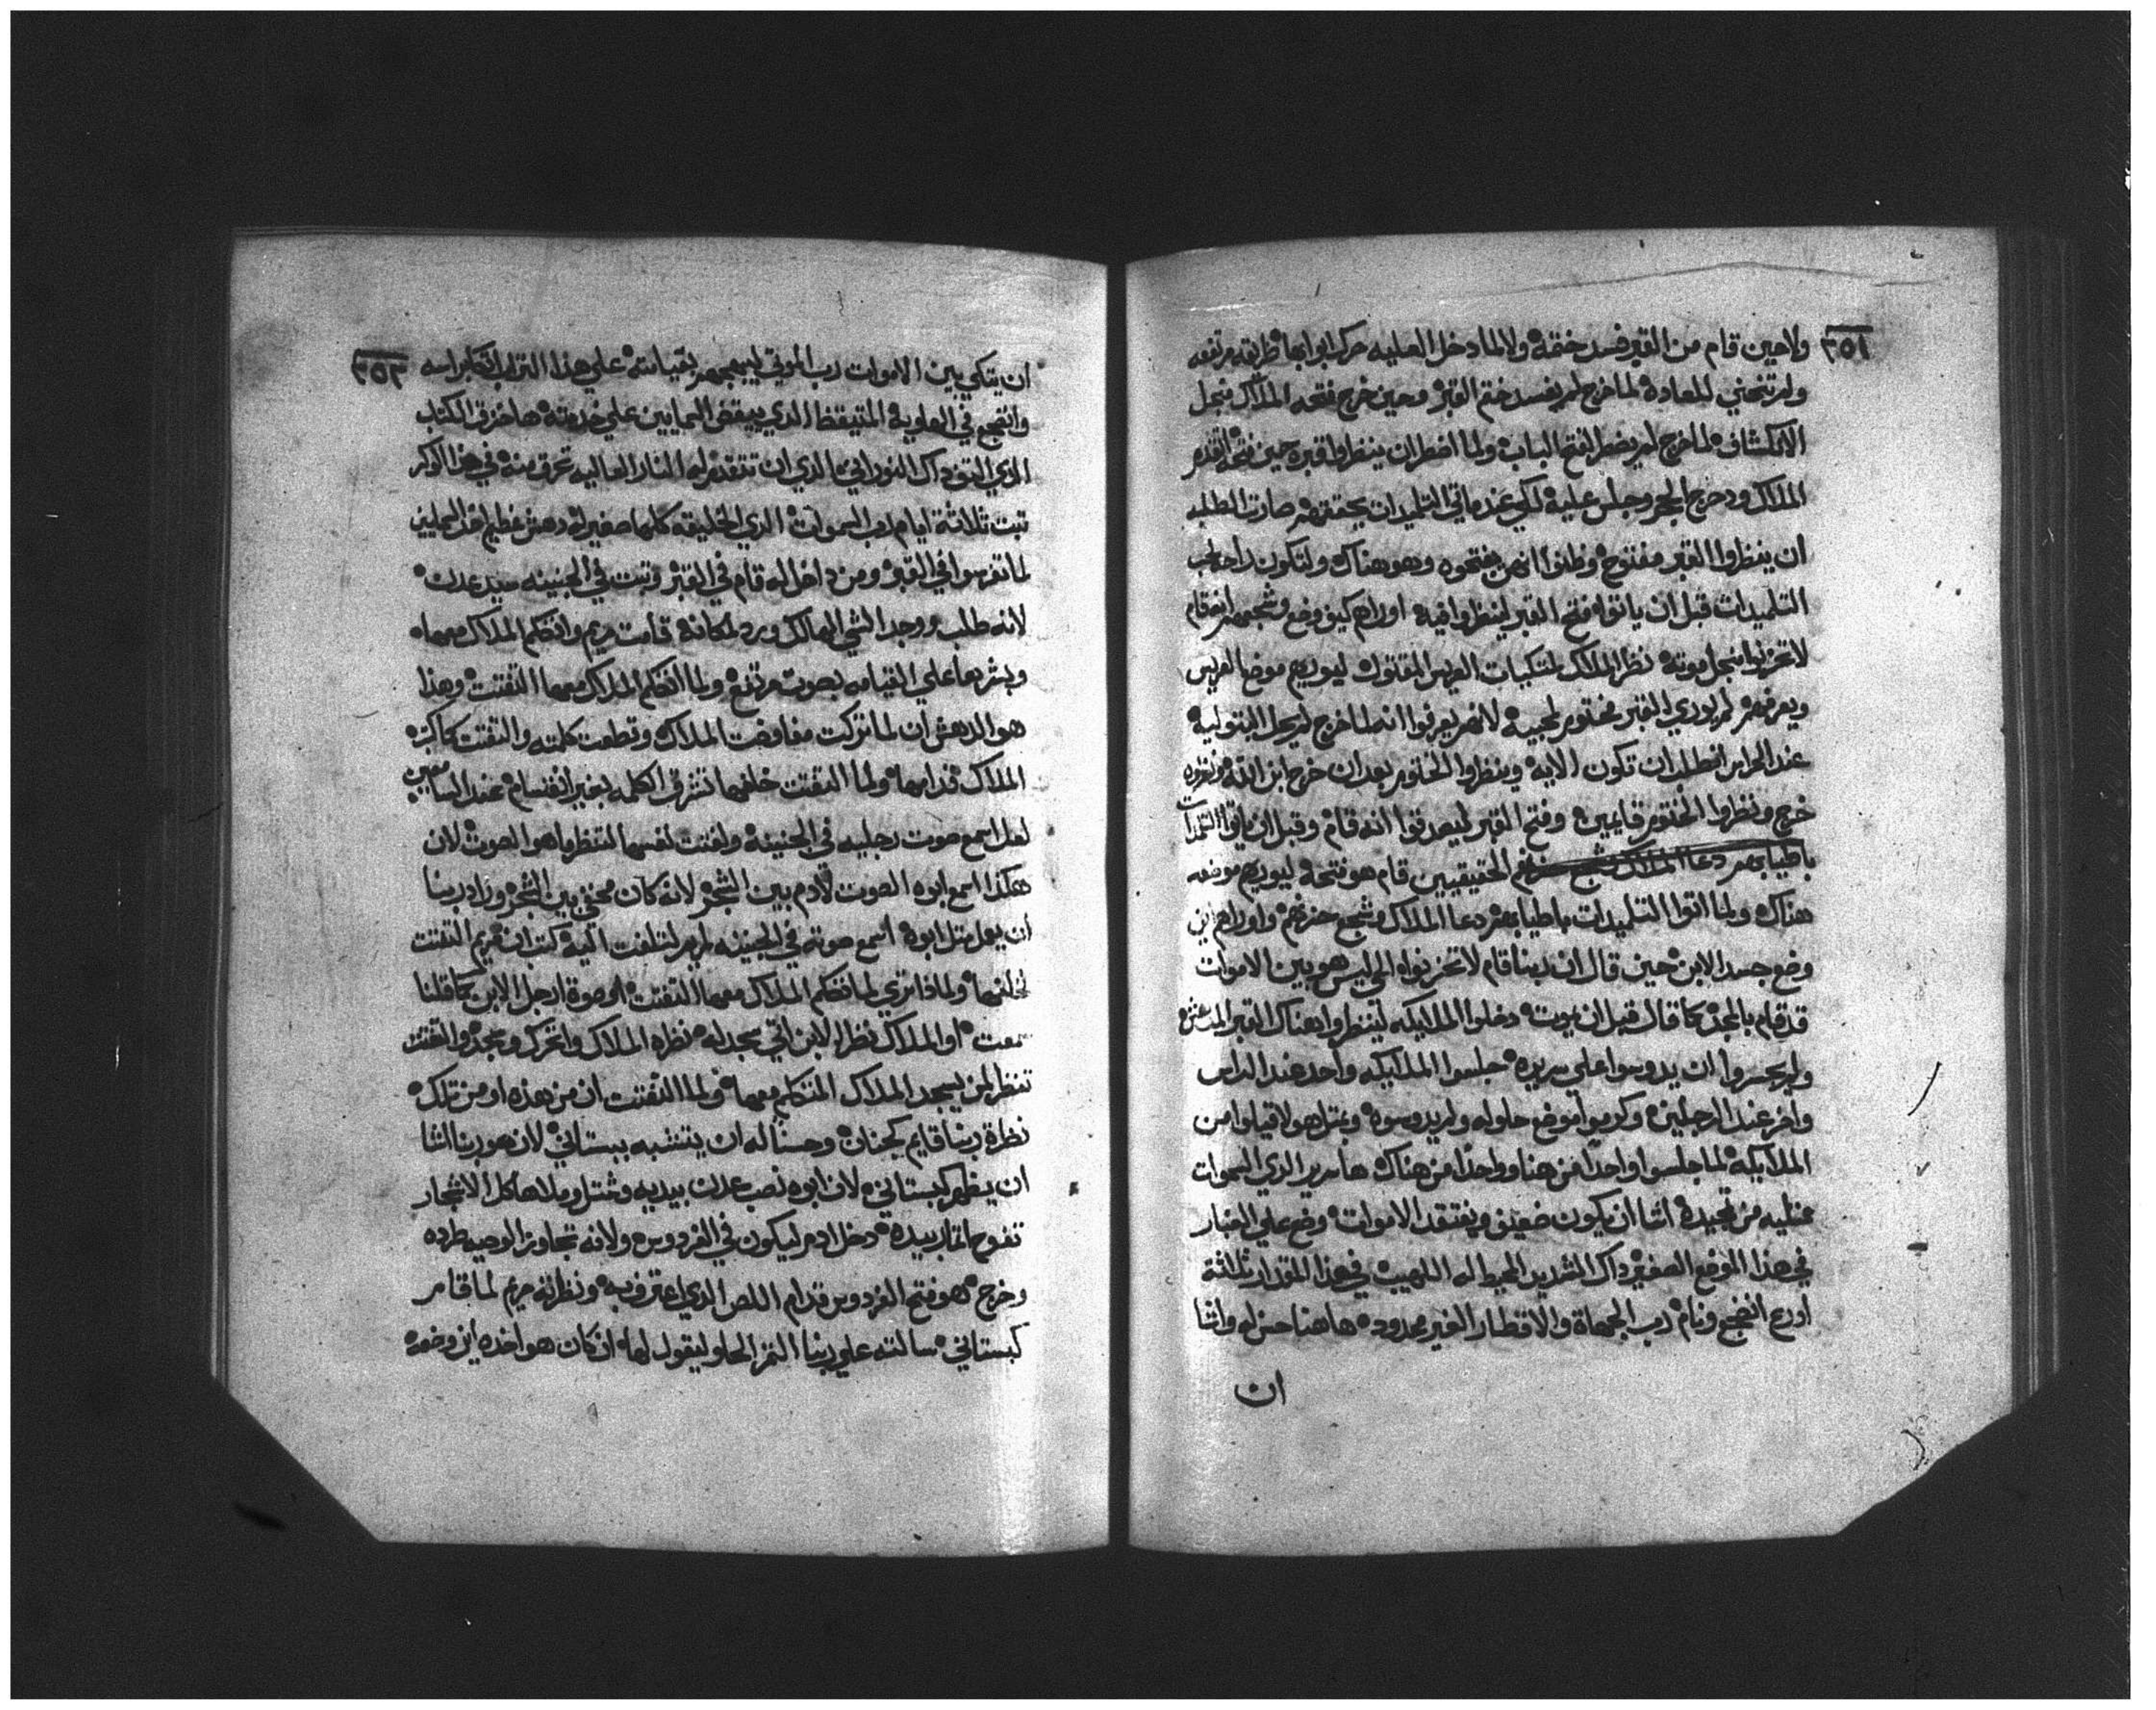 ٣٥٢
ولا حين قام من القبر فسد ختمه ولا لما دخل العليه حرك ابوابها طريقه مرتفعه
ولم تنحني للعاده لما خرج لم يفسد ختم القبر وحين خرج فتحه الملاك مجل
الانكشاف لما خرج لم يضطر لفتح الباب ولما اضطر ان ينظروا قبره حين فتحه القدم
الملاك ودحرج الحجر وجلس عليه لكي عندما تاتي التلميدات يحققهم صارت الطلبه
ان ينظروا القبر مفتوح وظنوا انهن يفتحوه وهو هناك ولتكون راحة لقلب
التلميدات قبل ان ياتوا فتح القبر لينظروا فيه اوراهم كيف وضع وشجعهم انه قام
لا تحزنوا مجل موته نظر الملاك لمتكيات العريس المقتول ليوريهم موضع العريس
ويعرفهم لم يوري القبر مختوم لمحبيه لانهم يعرفوا انه لما خرج لم يحل البتوليه
عند الحراس انطلب ان تكون الايه وينظروا الختوم بعد ان خرج ابن الله
خرج ونظروا الختوم قايمين وفتح القبر ليصدقوا انه قام وقبل ان ياتوا التلمدات
باطيابهم دعا الملاك الحقيقيين قام هو فتحه ليوريهم موضعه
هناك ولما اتوا التلميدات باطيابهم دعا الملاك وشجع حزنهم واوراهم اين
وضع جسد الابن حين قال ان ربنا قام لا تحزنوا الحي ليس هو بين الاموات
قد قام بالمجد كما قال قبل ان يموت دخلوا الملايكه لينظروا هناك القبر
ولم يجسروا ان يدوسوا على سريره جلسوا الملايكه واحد عند الراس
واخر عند الرجلين وكرموا موضع حلوله ولم يدوسوه وبمثل هولا قيلوا من
الملايكه لما جلسوا واحدا من هنا وواحدا من هناك ها سرير الذي السموات
ممتليه من تمجيده اشا ان يكون ضعيف ويفتقد الاموات وضع علي الغبار
في هذا الموضع الصغير داك الشديد المحيط له اللهيب في هذا المقدار ثلاثة
ادرع انضجع ونام رب الجهاة والاقطار الغير محدوده هاهنا حسن له واشا
ان
٣٥٣
ان يتكي بين الاموات رب الموتي ليبهجهم بقيامته علي هذا التراب اتكا براسه
وانضجع في الهاوية المتيقظ الدي ييقظ السمايين علي خدمته ها خزق الكتاب
الدي التوى داك النوراني الدي ان تتقدم له النار العاليه تحرق منه في هذا الوكر
تبت ثلاثة ايام رب السموات الدي الخليقه كلها صغيرة دهش عظيم اخد السمايين
لما تفرسوا في القبر ومن داخل اله قام في القبر وتبت في الجنينه سيد عدن
لانه طلب ووجد الشي الهالك ورد لمكانه قامت مريم واتكلم الملاك معها
وبشرها علي القيامه بصوت مرتفع ولما اتكلم الملاك معها التفتت وهذا
هو الدهش ان لما تركت مفاوضت الملاك وقطعت كلمته والتفتت كاكبر
الملاك قدامها ولما التفتت خلفها تشرق الكلمه بغير انقسام عند السامعين
لعل اسمع صوت رجليه في الجنينة ولفتت نفسها لتنظر ما هو الصوت لان
هكذا اسمع ابوه الصوت لادم بين الشجر لانه كان مختفي بين الشجر وراد ربنا
ان يعمل مثل ابوه اسمع صوته في الجنينه لمريم لتلفت اليه كتب ان مريم التفتت
لخلفها ولماذا تري لما اتكلم الملاك معها التفتت الو صوة ارجل الابن كما قلنا
سمعت او الملاك نظر الابن اتي سجد له نظره الملاك واتحرك وسجد والتفتت
تنظر لمن يسجد الملاك المتكلم معها ولما التفتت ان من هذه او من تلك
نظرة ربنا قايم كجنان وحسنا له ان يتشبه ببستاني لان هو ربنا اشا
ان يظهر كبستاني لان ابوه نصب عدن بيديه وشتل وملاها كل الاشجار
تفوح اتمار بيده دخل ادم ليكون في الفردوس ولانه تجاوز الوصيه طرده
وخرج هو فتح الفردوس قدام اللص الدي اعترف به ونظرته مريم لما قام
كبستاني سالته علي ربنا التمر الحلو ليقول لها ان كان هو اخده اين وضعه